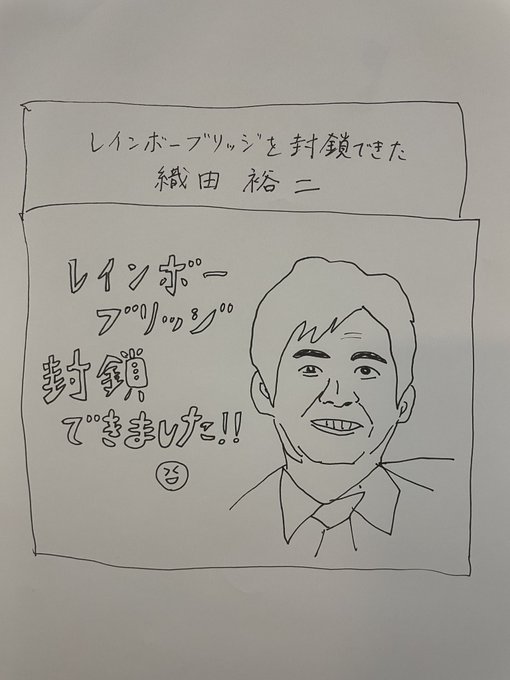 レインボーブリッジを封鎖できた
織田裕二
レインボー
ブリッジ
封鎖
できました!!